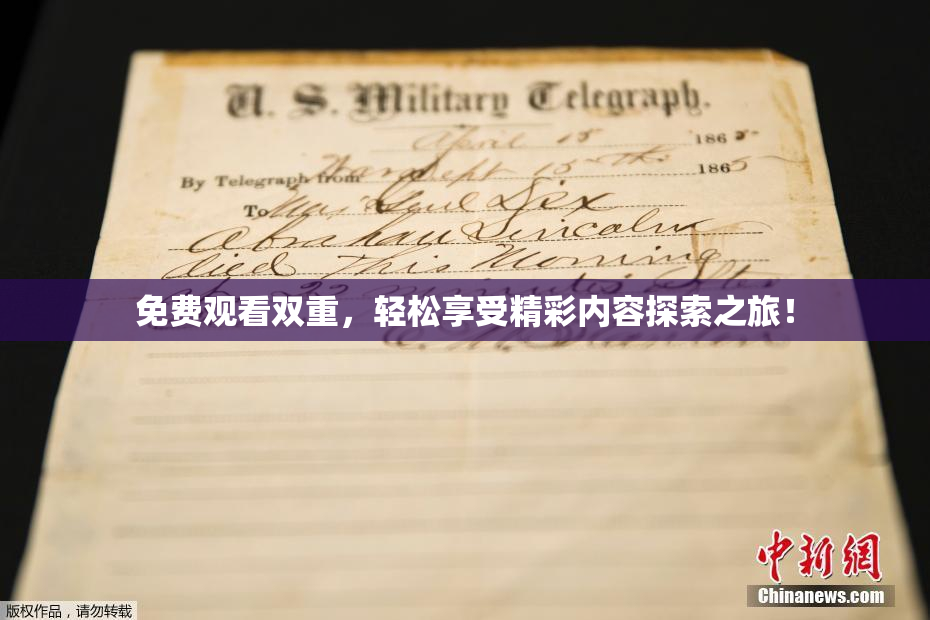 U. S. Military Telegraph.
April 15 1865
By Telegraph from War Dept 15th 1865
To Maj Genl Dix
Abraham Lincoln
died This Morning
at 22 minutes after
免费观看双重，轻松享受精彩内容探索之旅！
E. M. Stanton
中新网
Chinanews.com
版权作品，请勿转载